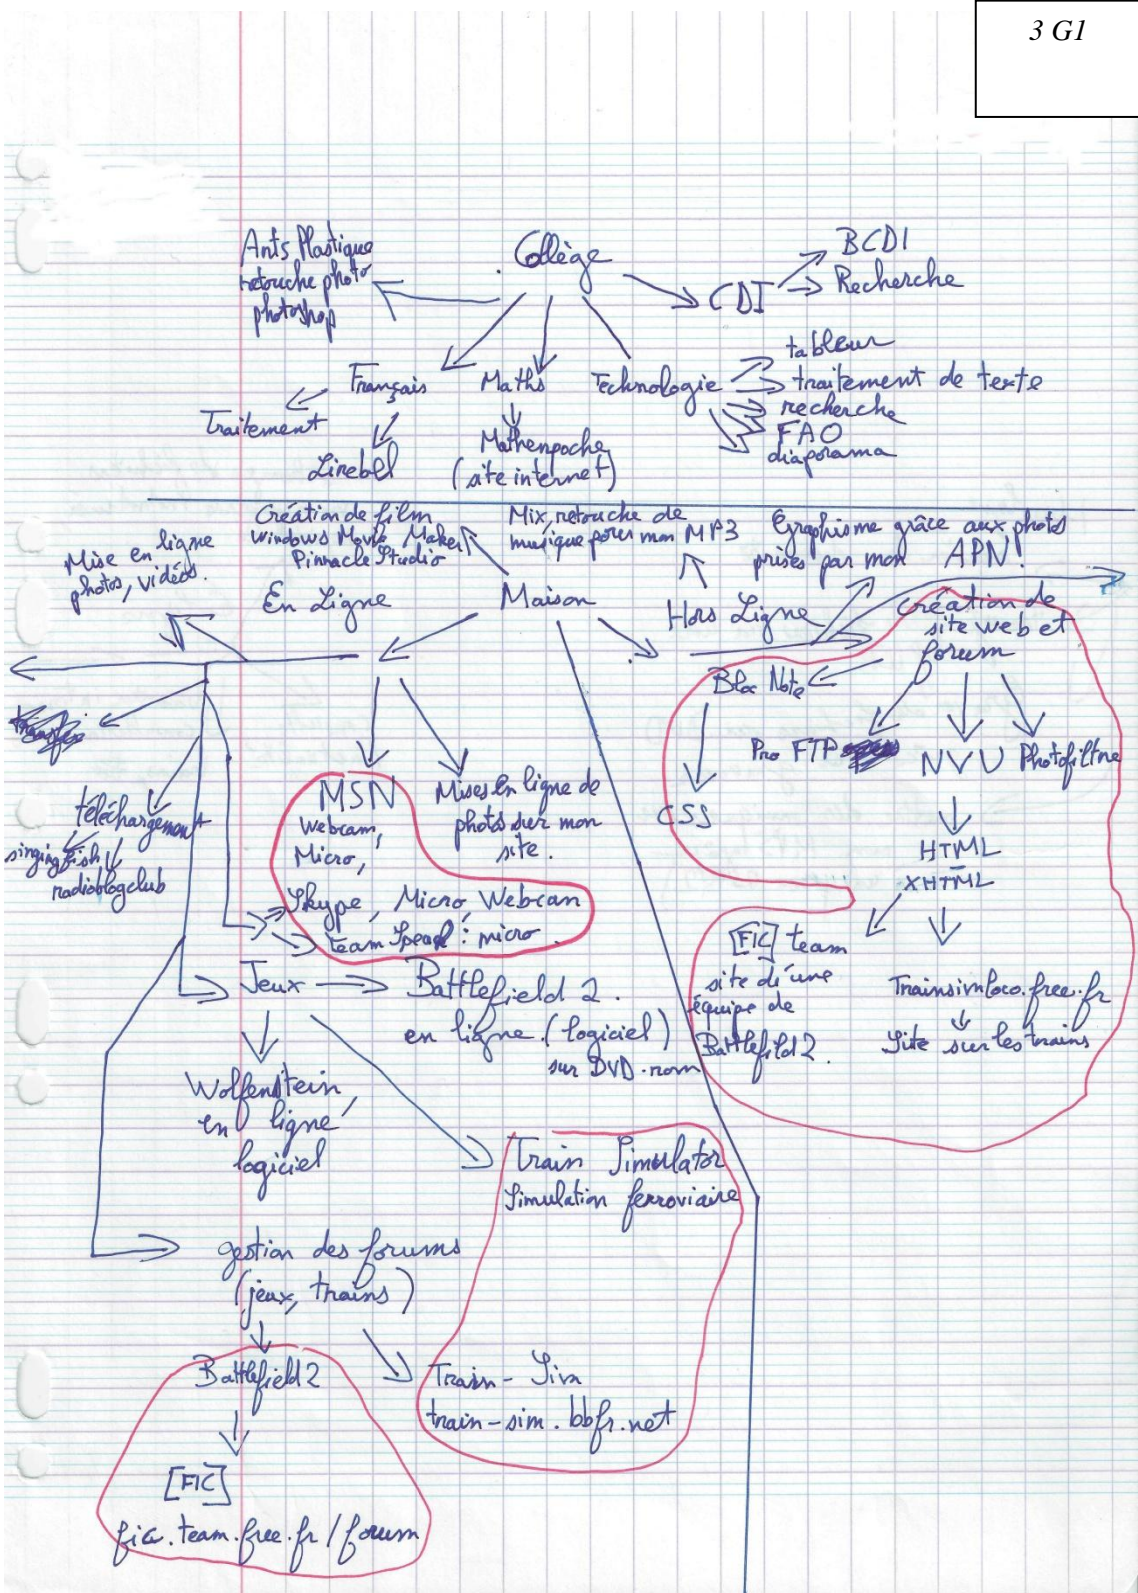 3 G1
Collège
Arts Plastique
retouche photo
photoshop
CDI
BCDI
Recherche
Français
Traitement
Linebel
Maths
Mathenpoche
(site internet)
Technologie
tableur
traitement de texte
recherche
FAO
diaporama
Création de film
Windows Movie Maker
Pinnacle Studio
Mix, retouche de
musique pour mon MP3
Graphisme grâce aux photos
prises par mon APN.
Mise en ligne
photos, vidéos.
En Ligne
Maison
Hors Ligne
Création de
site web et
forum
Bloc Note
CSS
Pro FTP
NVU
Photofiltre
HTML
XHTML
[FIC] team
site d'une
équipe de
Battlefild 2.
Trainsimloco.free.fr
Site sur les trains
téléchargement
singingfish
radioblogclub
MSN
Webcam,
Micro,
Mises en ligne de
photos sur mon
site.
Skype, Micro, Webcam
team Speak : micro.
Jeux
Battlefield 2.
en ligne (logiciel)
sur DVD-rom
Wolfenstein
en ligne
logiciel
Train Simulator
Simulation ferroviaire
gestion des forums
(jeux, trains)
Battlefield 2
[FIC]
fic.team.free.fr/forum
Train-Sim
train-sim.bbfr.net